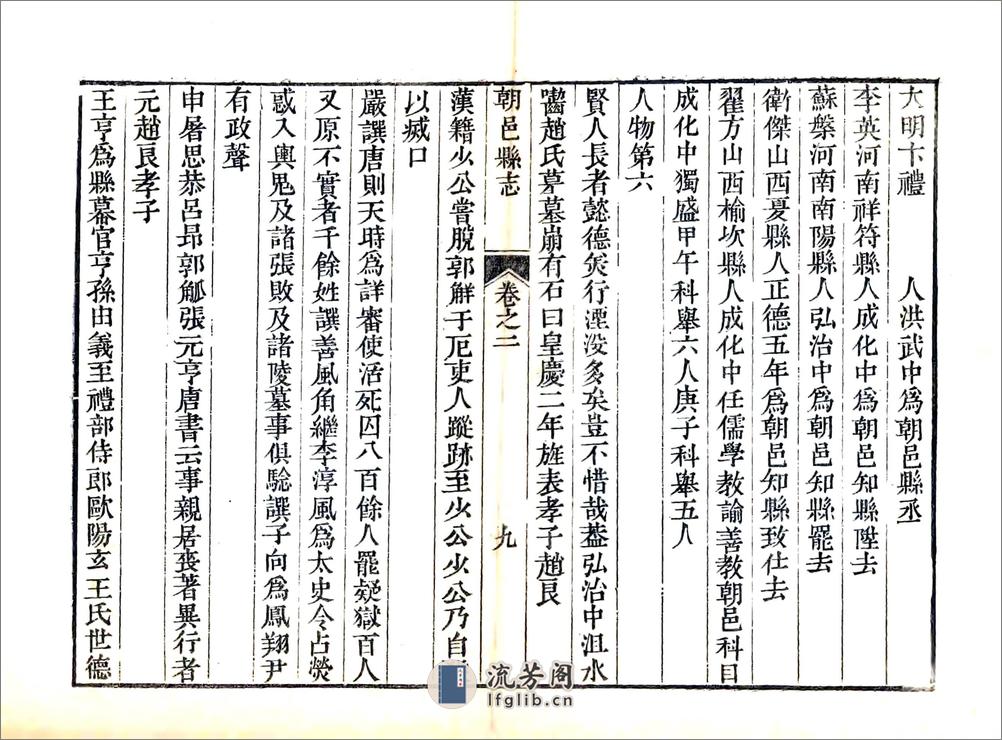 大明卞禮　　人洪武中爲朝邑縣丞
李英河南祥符縣人成化中爲朝邑知縣陞去
蘇槃河南南陽縣人弘治中爲朝邑知縣罷去
衛傑山西夏縣人正德五年爲朝邑知縣致仕去
翟方山西榆次縣人成化中任儒學教諭善教朝邑科目
成化中獨盛甲午科舉六人庚子科舉五人
人物第六
賢人長者懿德炁行湮没多矣豈不惜哉葢弘治中沮水
齧趙氏墓墓崩有石曰皇慶二年旌表孝子趙良
朝邑縣志　卷之二　九
漢籍少公嘗脫郭解于厄吏人蹤跡至少公少公乃自
以烕口
嚴譔唐則天時爲詳審使活死囚八百餘人罷疑獄百人
又原不實者千餘姓譔善風角繼李淳風爲太史令占熒
惑入輿鬼及諸張敗及諸陵墓事俱騐譔子向爲鳳翔尹
有政聲
申屠思恭呂昻郭觚張元亨唐書云事親居喪著異行者
元趙良孝子
王亨爲縣幕官亨孫由義至禮部侍郎歐陽玄王氏世德
流芳阁
lfglib.cn